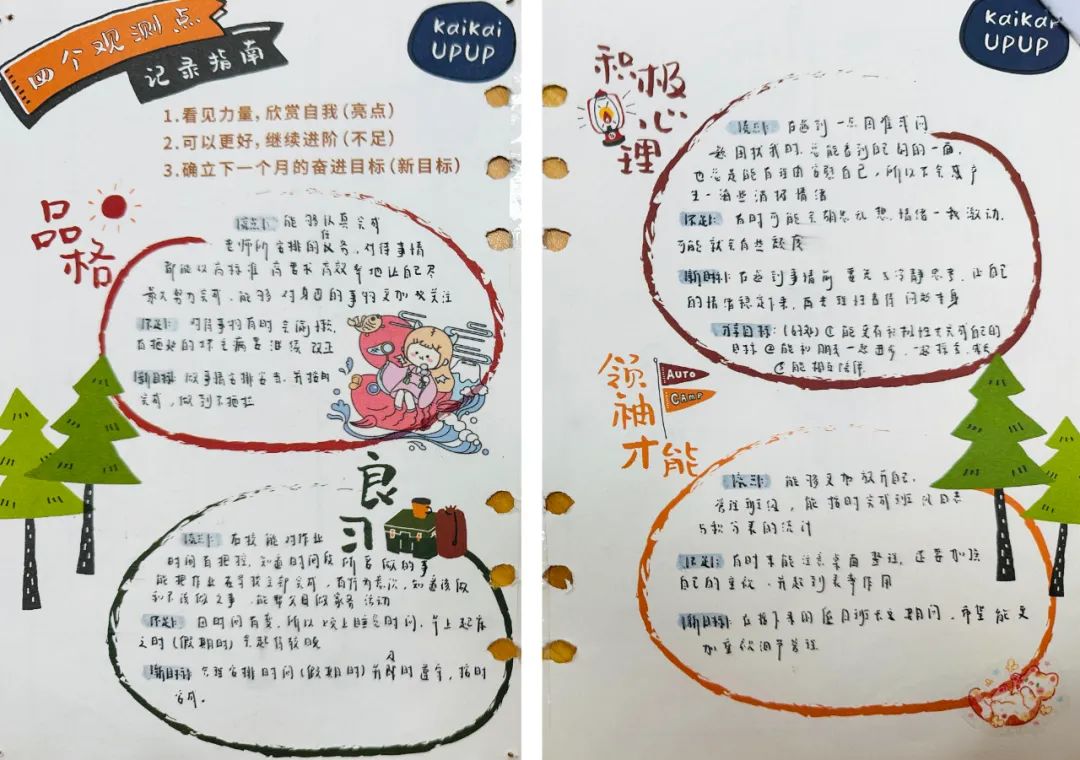 四个观测点
记录指南
KaiKai
UPUP
1.看见力量，欣赏自我(亮点)
2.可以更好，继续进阶(不足)
3.确立下一个月的奋进目标(新目标)
品格
亮点: 能够认真完成
老师所安排的任务，对待事情
都能以高标准 高要求 高效率地让自己尽
最大努力完成，能够对身围的事物更加关注
不足: 对待事物有时会偷懒，
有拖延的坏毛病要继续改正
新目标: 做事情安排妥当，并按时
完成，做到不拖拉
良习
亮点: 在校能对作业
时间有把控，知道时间段所要做的事
能把作业在学校全部完成，有行为意识，知道该做
和不该做之事，能帮父母做家务活动
不足: 因时间有素，所以晚上睡觉时间，早上起床
之时(假期时)会起得较晚
新目标: 合理安排时间(假期时)并即时遵守，按时
完成。
KaiKai
UPUP
积极心理
亮点: 在遇到一点困难或问
题困扰我时，总能看到自己好的一面，
也总是能有理由安慰自己，所以不会产
生一些消极情绪
不足: 有时可能会胡思乱想，情绪一激动，
可能就会有些
新目标: 在遇到事情前要先去冷静思考，让自己
的情绪稳定下来，再去理性看待问题本身
分享目标: (好朋)①能更有积极性去完成自己的
目标②能和朋友一起进步，一起探索，
③能相互陪伴
领袖才能
AUTO
CAMP
亮点: 能够更加放开自己，
管理班级，能按时完成班级日志
与积分表的统计
不足: 有时未能注意桌面整理，还要加强
自己的重视，并起到表率作用
新目标: 在接下来的值日班长之期间，希望能更
加重视调节管理